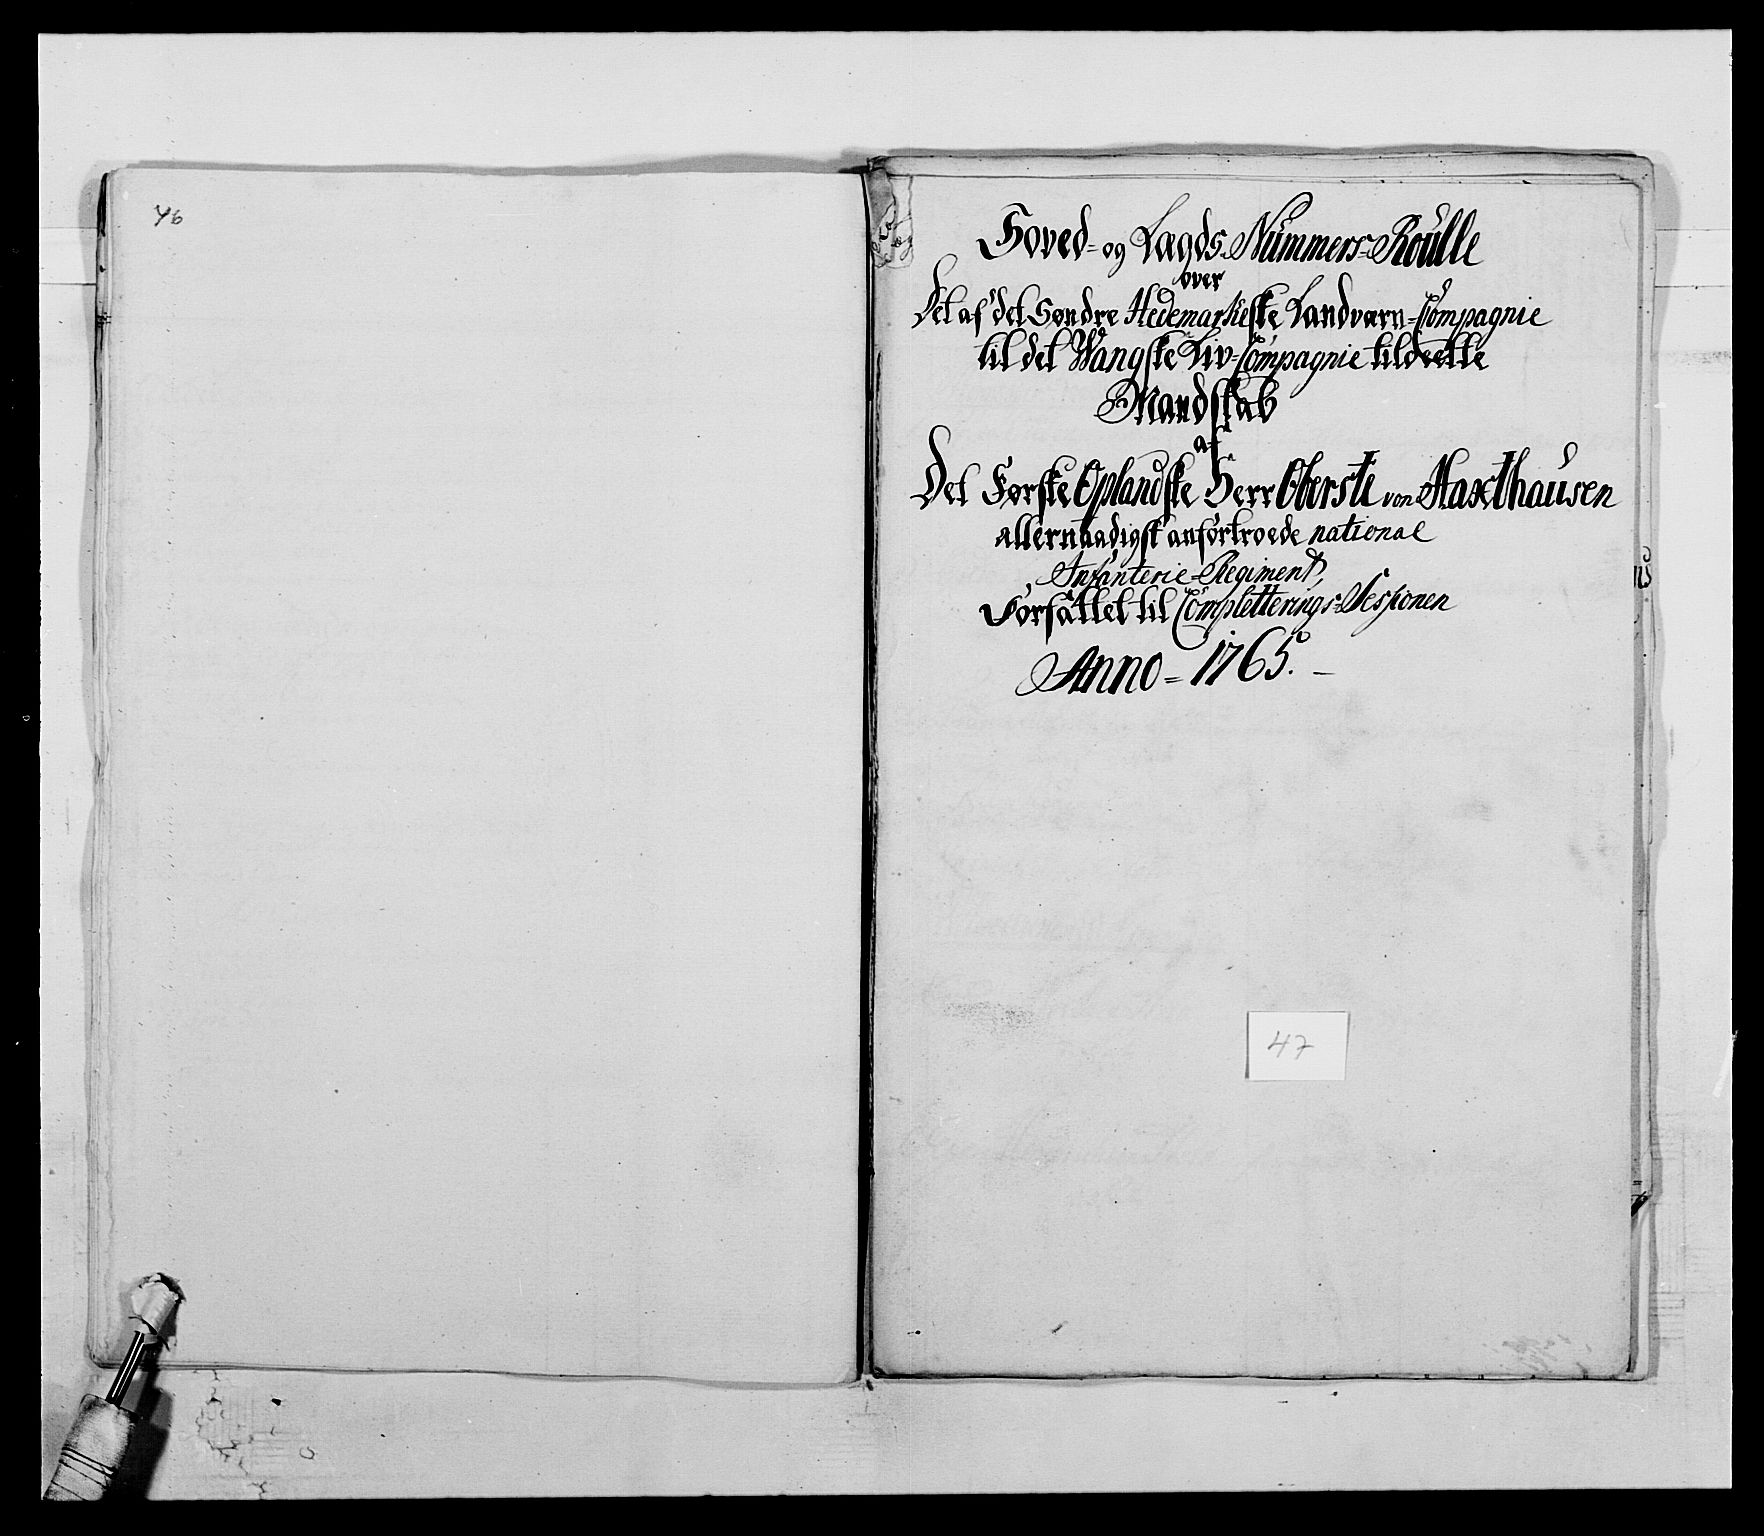 46
Hoved- og Lægds-Nummers-Roulle
over
Det af det Søndre Hedemarkeske Landværn-Compagnie
til det Wangske Liv-Compagnie tildeelte
Mandskab
af
Det Første Oplandske Herr Oberste von Haxthausen
allernaadigst anfortroede national
Infanterie-Regiment,
Forfattet til Completterings-Sessionen
Anno = 1765. —
47